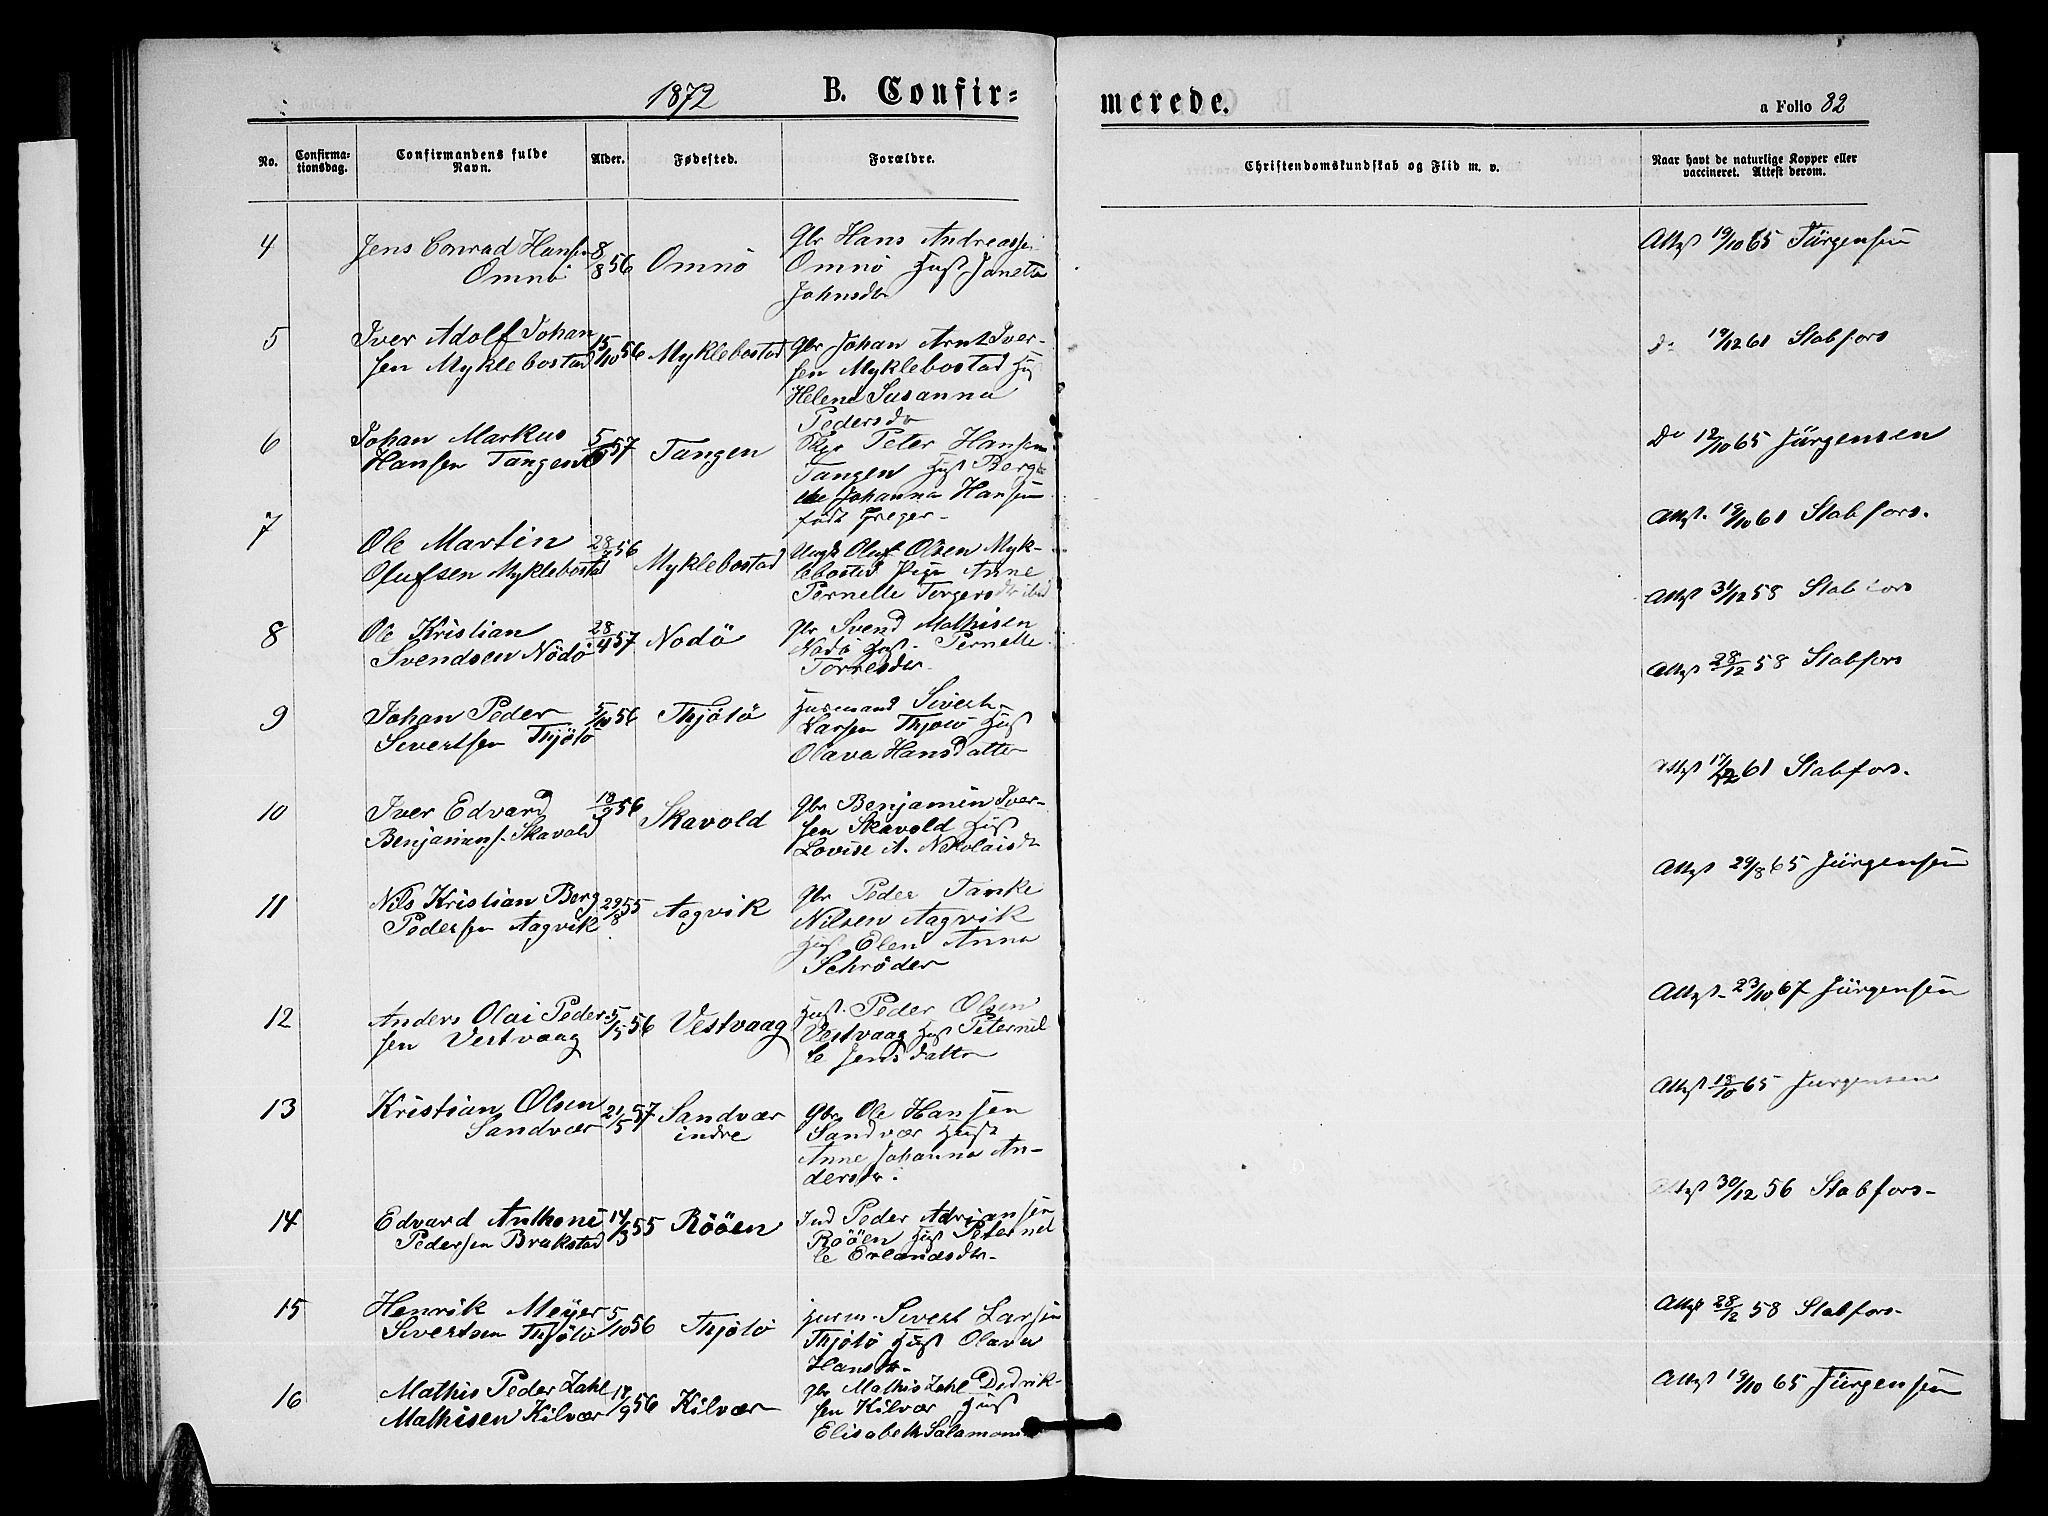 1872 B. Confir=
merede. a Folio 82
No. Confirma-
tionsdag. Confirmandens fulde
Navn. Alder. Fødested. Forældre. Christendomskundskab og Flid m. v. Naar havt de naturlige Kopper eller
vaccineret. Attest derom.
4 Jens Conrad Hansen
Omnö 8/8 56 Omnö Gbr Hans Andreassen
Omnö Hust Janetta
Johnsdr Attest 19/10 65 Jürgensen
5 Iver Adolf Johan
sen Myklebostad 15/10 56 Myklebostad Gbr Johan Arnt Iver-
sen Myklebostad Hust
Helene Susanna
Pedersdr Do 19/12 61 Stabfors
6 Johan Markus
Hansen Tangen 57 Tangen Peter Hansen
Tangen Hust Berg
Johanna Hansen
født Greger- Do 12/10 65 Jürgensen
7 Ole Martin
Olufsen Myklebostad 56 Myklebostad Ungk Oluf Olsen Myk-
lebostad Pige Anne
Pernelle Torgersdr ibid Attest. 19/10 61 Stabfors.
8 Ole Kristian
Svendsen Nödö 28/4 57 Nodö Gbr Svend Mathisen
Nodö Hust. Pernelle
Torresdr. Attest 31/12 58 Stabfors
9 Johan Peder
Sivertsen Thjötö 5/10 56 Thjötö Husmand Sivert
Larsen Thjötö Hust
Olava Hansdatter Attest 28/12 58 Stabfors
10 Iver Edvard
Benjamins. Skavold 18/9 56 Skavold Gbr Benjamin Iver-
sen Skavold Hust
Lovise A. Nikolaisdr Attest 17/12 61 Stabfors.
11 Nils Kristian Berg
Pedersen Aagvik 29/8 55 Aagvik Gbr Peder Tanke
Nilsen Aagvik
Hust Elen Anna
Schröder Attest 29/8 65 Jürgensen
12 Anders Olai Peder
sen Vestvaag 5/5 56 Vestvaag Peder Olsen
Vestvaag Hust Peternil
le Jensdatter Attest- 23/10 67 Jürgensen
13 Kristian Olsen
Sandvær 21/5 57 Sandvær
indre Gbr. Ole Hansen
Sandvær Hust
Anne Johanna An-
dersdr. Attest 18/10 65 Jurgensen
14 Edvard Anthoni
Pedersen Brakstad 14/3 55 Rööen Ind Peder Adriansen
Rööen Hust Peternel
le Erlandsdr. Attest 30/12 56 Stabfors-
15 Henrik Meyer
Sivertsen Thjötö 5/10 56 Thjötö Husm. Sivert Larsen
Thjötö Hust Olava
Hansdr. Attest 28/12 58 Stabfors-
16 Mathis Peder Zahl
Mathisen Kilvær 14/9 56 Kilvær Gbr Mathis Zahl Didrik-
sen Kilvær Hust
Elisabeth Salamonsdr Attest 19/10 65 Jürgensen